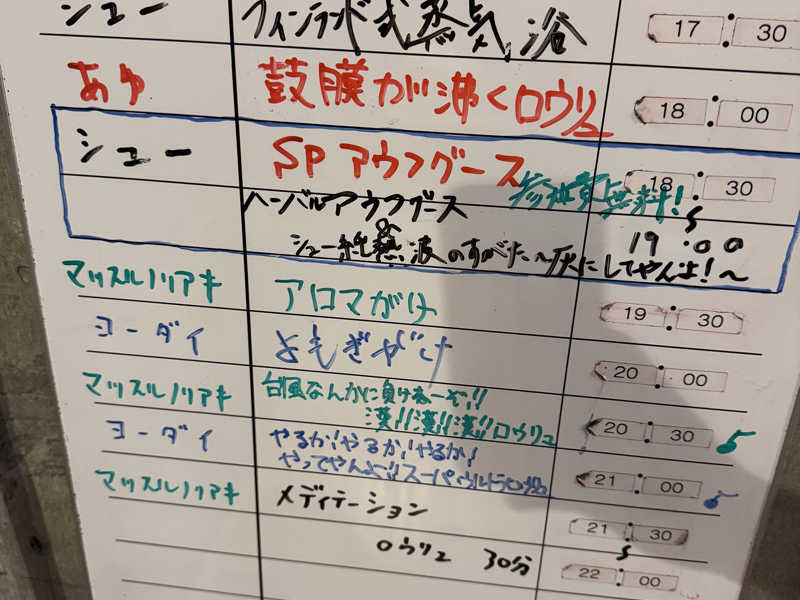 シュー フィンランド式蒸気浴 17:30
あゆ 鼓膜が沸くロウリュ 18:00
シュー SPアウフグース 参加費無料! 18:30
ハーバルアウフグース
&
シュー純熱波のすがた〜灰にしてやんよ!〜 19:00
マッスルノリアキ アロマがけ 19:30
ヨーダイ よもぎがけ 20:00
マッスルノリアキ 台風なんかに負けねーぞ!!
漢!!漢!!漢!!ロウリュ 20:30
ヨーダイ やるか!やるか!やるか!
やってやんよ!!スーパーウルトラロウリュ 21:00
マッスルノリアキ メディテーション 21:30
ロウリュ 30分 22:00